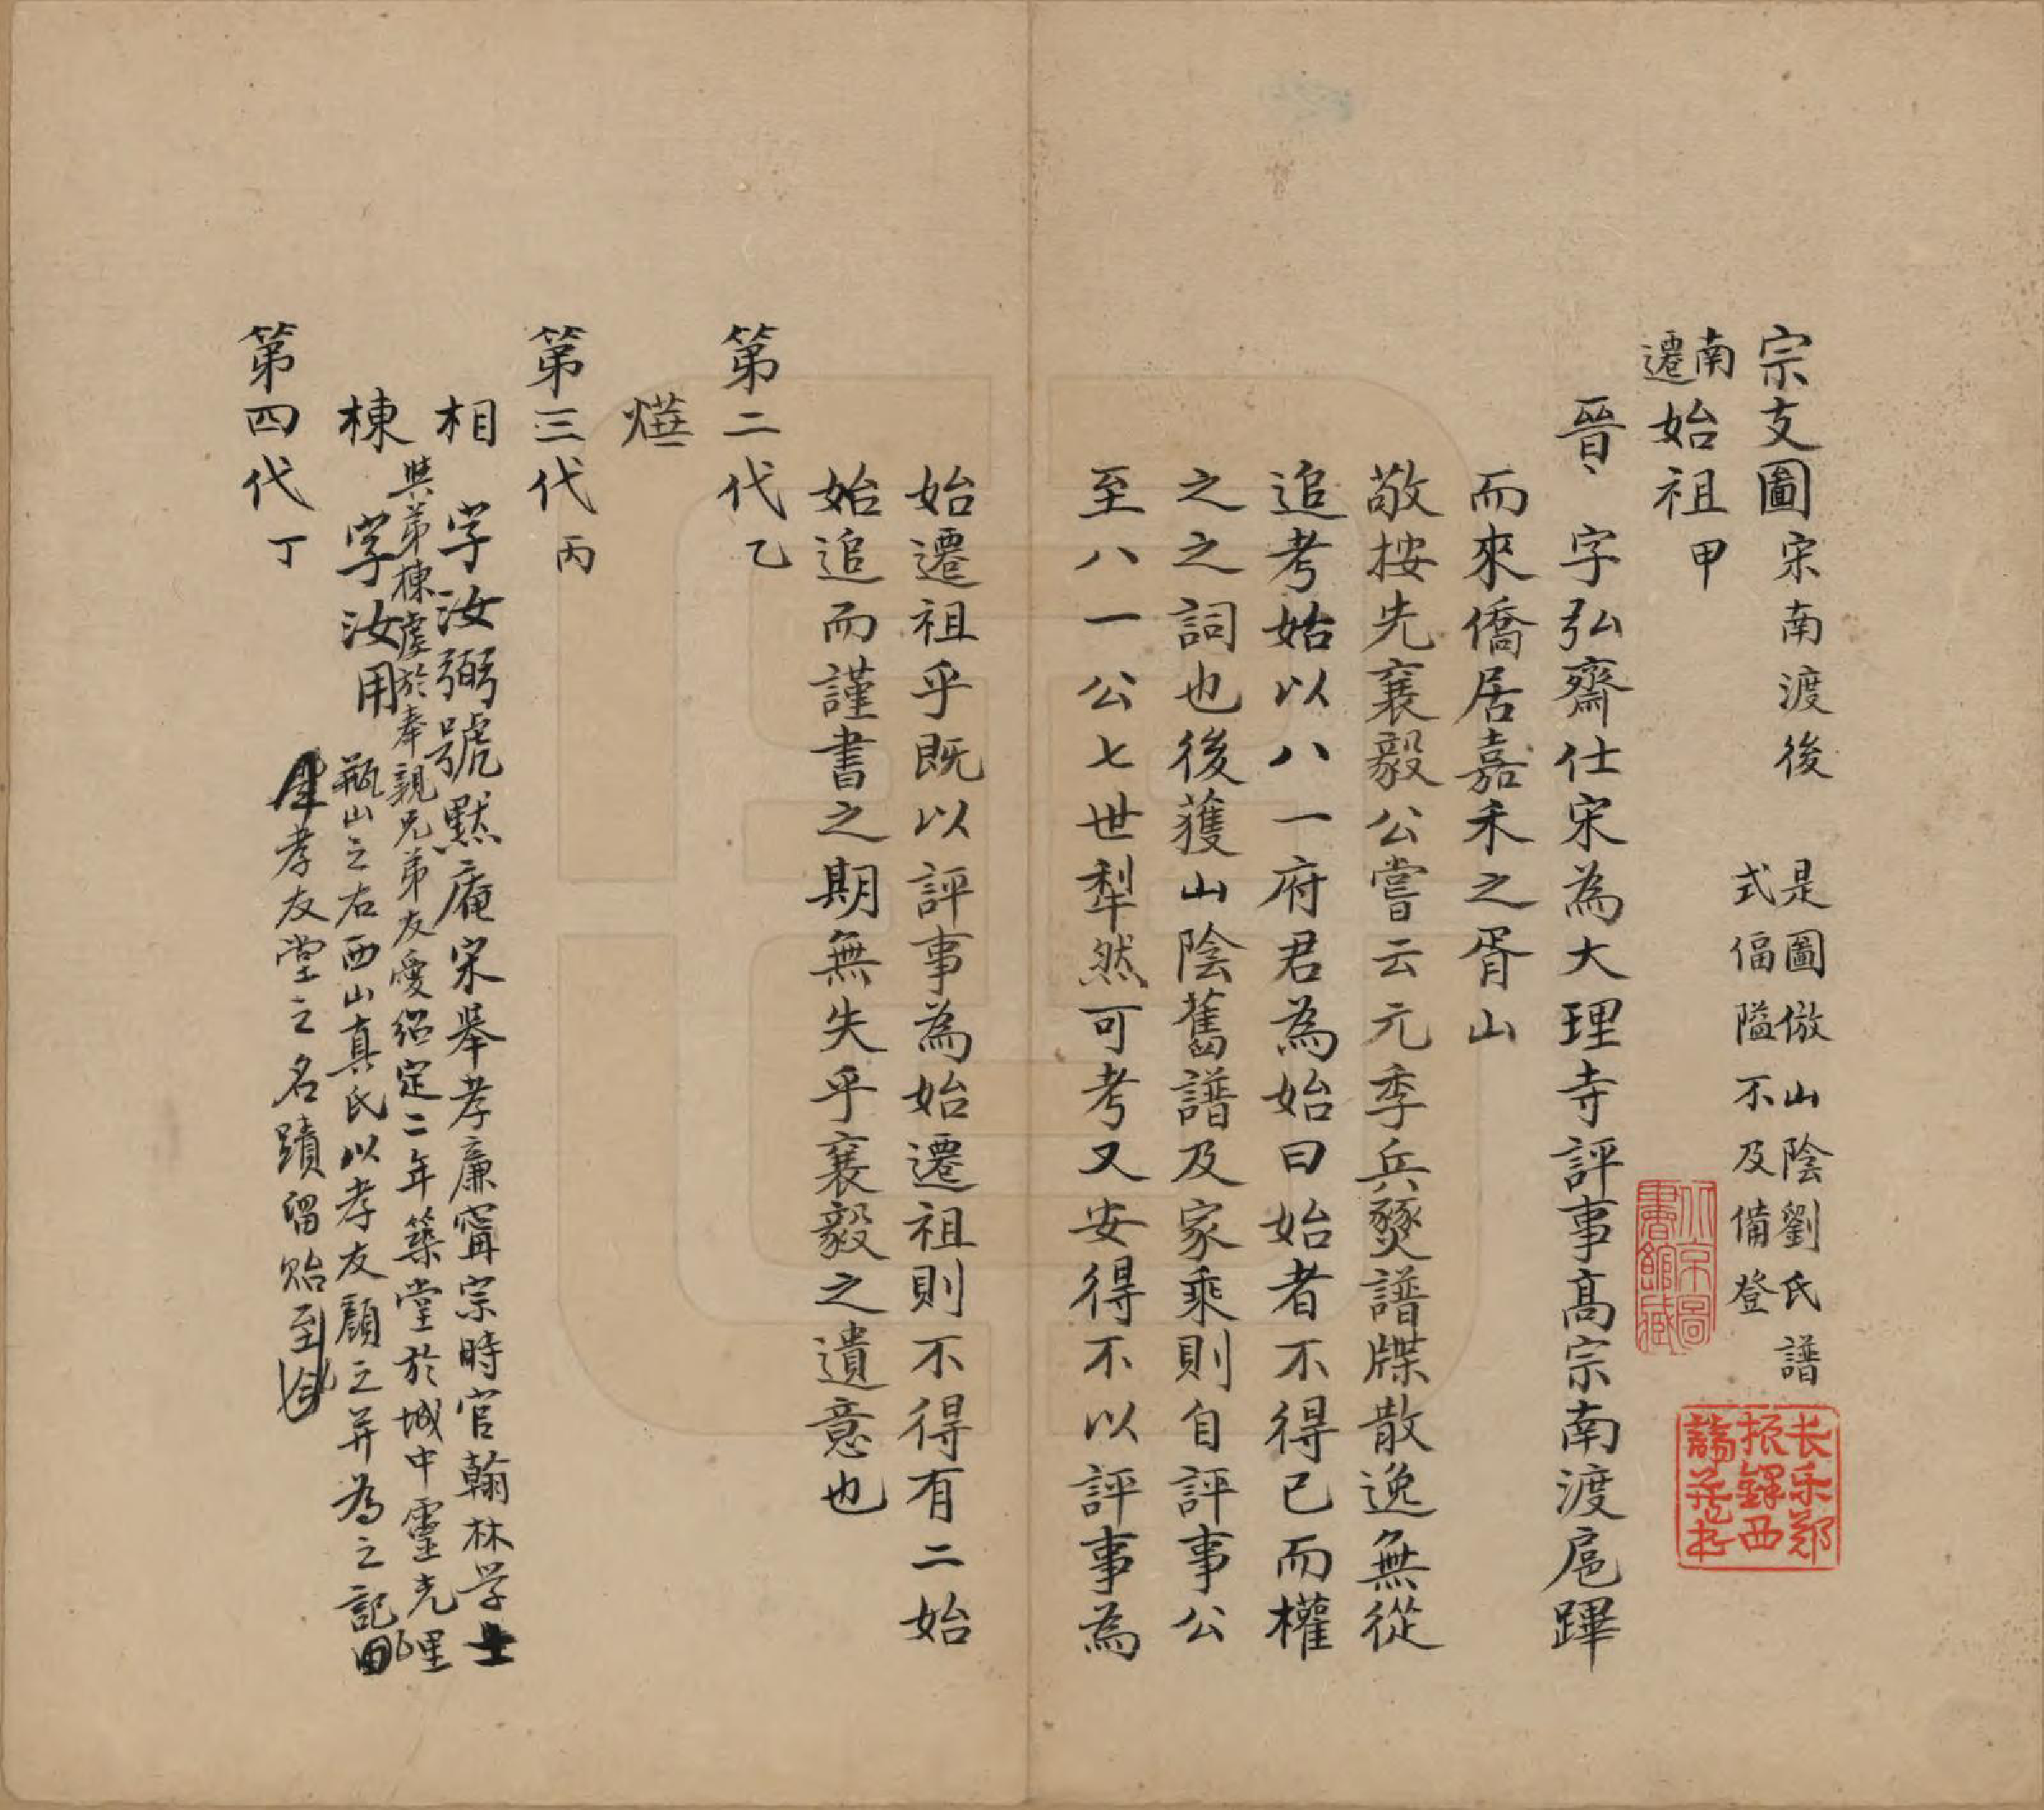 宗支圖宋南渡後
是圖倣山陰劉氏譜
式偪隘不及備登
南遷始祖甲
晉 字弘齋仕宋為大理寺評事髙宗南渡扈蹕
而來僑居嘉禾之胥山
敬按先襄毅公嘗云元季兵燹譜牒散逸無從
追考姑以八一府君為始曰始者不得已而權
之之詞也後獲山陰舊譜及家乘則自評事公
至八一公七世犁然可考又安得不以評事為
始遷祖乎既以評事為始遷祖則不得有二始
始追而謹書之期無失乎襄毅之遺意也
第二代乙
燁
第三代丙
相 字汝弼號默庵宋舉孝廉甯宗時官翰林学士
與弟棟虔於奉親兄弟友愛紹定二年築堂於城中靈光里
棟 字汝用
瓶山之右西山真氏以孝友顔之并為之記曰
孝友堂之名蹟留貽到今
第四代丁
北京圖書館藏
長樂鄭振鐸西諦藏書